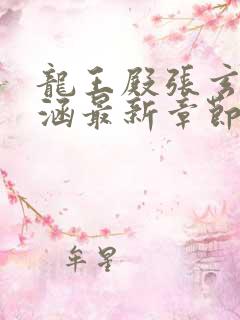 龍王殿張玄
涵最新章節
牟星